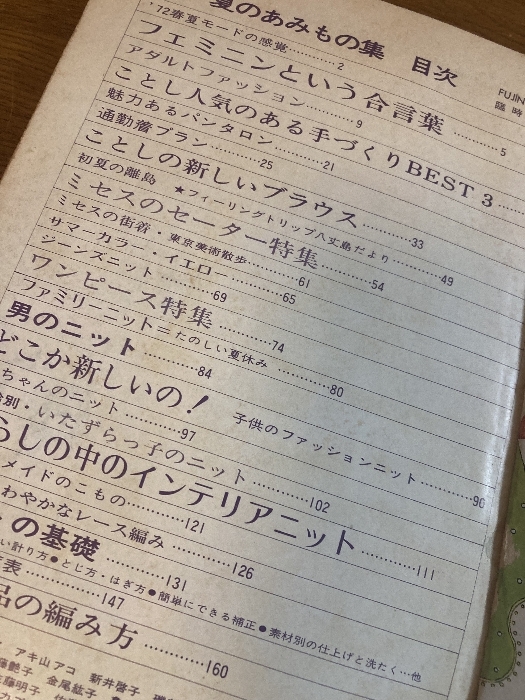 夏のあみもの集 目次
FUJIN
臨時
'72春夏モードの感覚…………2
フェミニンという合言葉…………5
アダルトファッション…………9
ことし人気のある手づくりBEST 3……
魅力あるパンタロン…………21
通勤着プラン…………25
ことしの新しいブラウス…………33
初夏の離島 ★フィーリングトリップ八丈島だより…………49
ミセスのセーター特集…………54
ミセスの街着・東京美術散歩…………61
サマーカラー・イエロー…………65
ジーンズニット…………69
ワンピース特集…………74
ファミリーニット=たのしい夏休み…………80
男のニット…………84
どこか新しいの! 子供のファッションニット…………90
ちゃんのニット…………97
別・いたずらっ子のニット…………102
らしの中のインテリアニット…………111
メイドのこもの…………121
わやかなレース編み…………126
の基礎…………131
い計り方●とじ方・はぎ方●簡単にできる補正●素材別の仕上げと洗たく…他
表…………147
品の編み方…………160
アキ山アコ 新井啓子
藤艶子 金尾紘子
佐藤明子